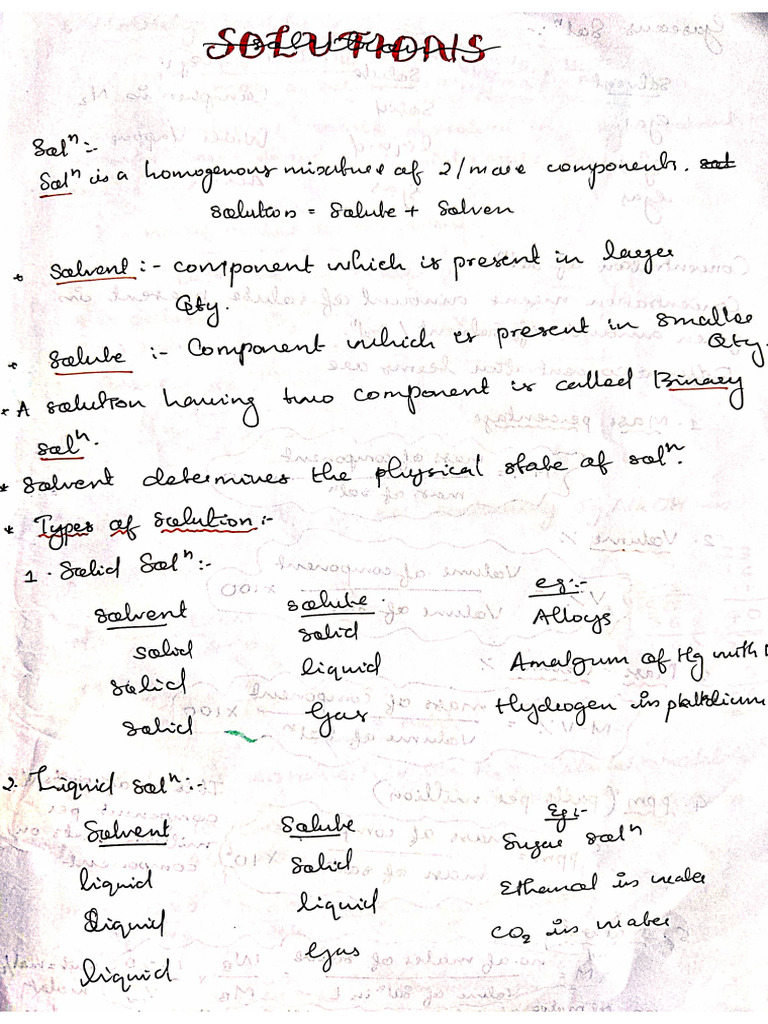 SOLUTIONS
Solⁿ :-
Solⁿ is a homogenous mixture of 2/more components. sol
solution = Solute + Solven
* Solvent :- component which is present in larger
Qty.
* Solute :- Component which is present in smaller
Qty.
* A solution having two component is called Binary
solⁿ.
* Solvent determines the physical state of solⁿ.
* Types of Solution :-
1. Solid Solⁿ :-
solvent solute eg:-
solid solid Alloys
solid liquid Amalgum of Hg with
solid Gas Hydrogen in
2. Liquid solⁿ :-
Solvent Solute Eg:-
liquid Solid Sugar solⁿ
liquid liquid Ethanol in water
liquid Gas CO₂ in water